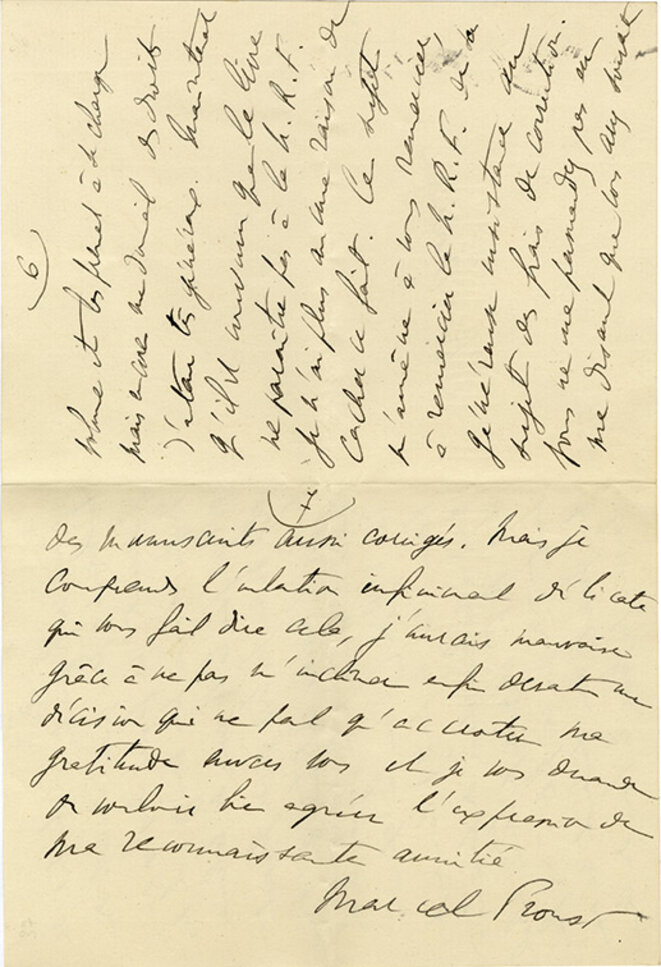 6
volume et les prend à sa charge
mais encore me donnait des droits
d'auteur très généreux. Maintenant
qu'il est convenu que le livre
ne paraîtra pas à la N. R. F.
je n'ai plus aucune raison de
cacher ce fait. Ce sujet
m'amène à vous remercier,
à remercier la N. R. F. de sa
généreuse insistance au
sujet des frais de correction.
Vous ne me persuadez pas en
me disant que vous avez souvent
des manuscrits aussi corrigés. Mais je
comprends l'intention infiniment délicate
qui vous fait dire cela, j'aurais mauvaise
grâce à ne pas m'incliner enfin devant une
décision qui ne fait qu'accroître ma
gratitude envers vous et je vous demande
de vouloir bien agréer l'expression de
ma reconnaissante amitié
Marcel Proust